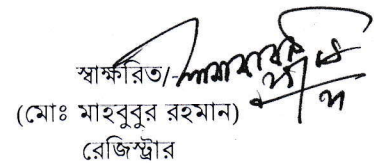 স্বাক্ষরিত/-
(মোঃ মাহবুবুর রহমান)
রেজিস্ট্রার